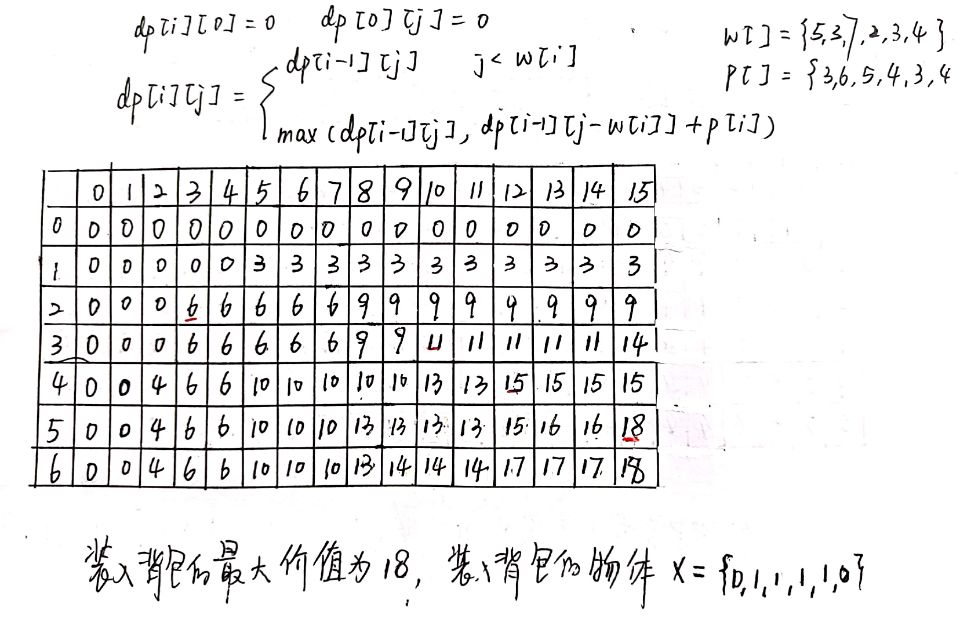 dp[i][0]=0 dp[0][j]=0
w[ ]={5,3,7,2,3,4}
dp[i-1][j] j<w[i]
p[ ]={3,6,5,4,3,4
dp[i][j]=
max(dp[i-1][j], dp[i-1][j-w[i]]+p[i])
0 1 2 3 4 5 6 7 8 9 10 11 12 13 14 15
0 0 0 0 0 0 0 0 0 0 0 0 0 0 0 0 0
1 0 0 0 0 0 3 3 3 3 3 3 3 3 3 3 3
2 0 0 0 6 6 6 6 6 9 9 9 9 9 9 9 9
3 0 0 0 6 6 6 6 6 9 9 11 11 11 11 11 14
4 0 0 4 6 6 10 10 10 10 10 13 13 15 15 15 15
5 0 0 4 6 6 10 10 10 13 13 13 13 15 16 16 18
6 0 0 4 6 6 10 10 10 13 14 14 14 17 17 17 18
装入背包的最大价值为18, 装入背包的物体 X={0,1,1,1,1,0}